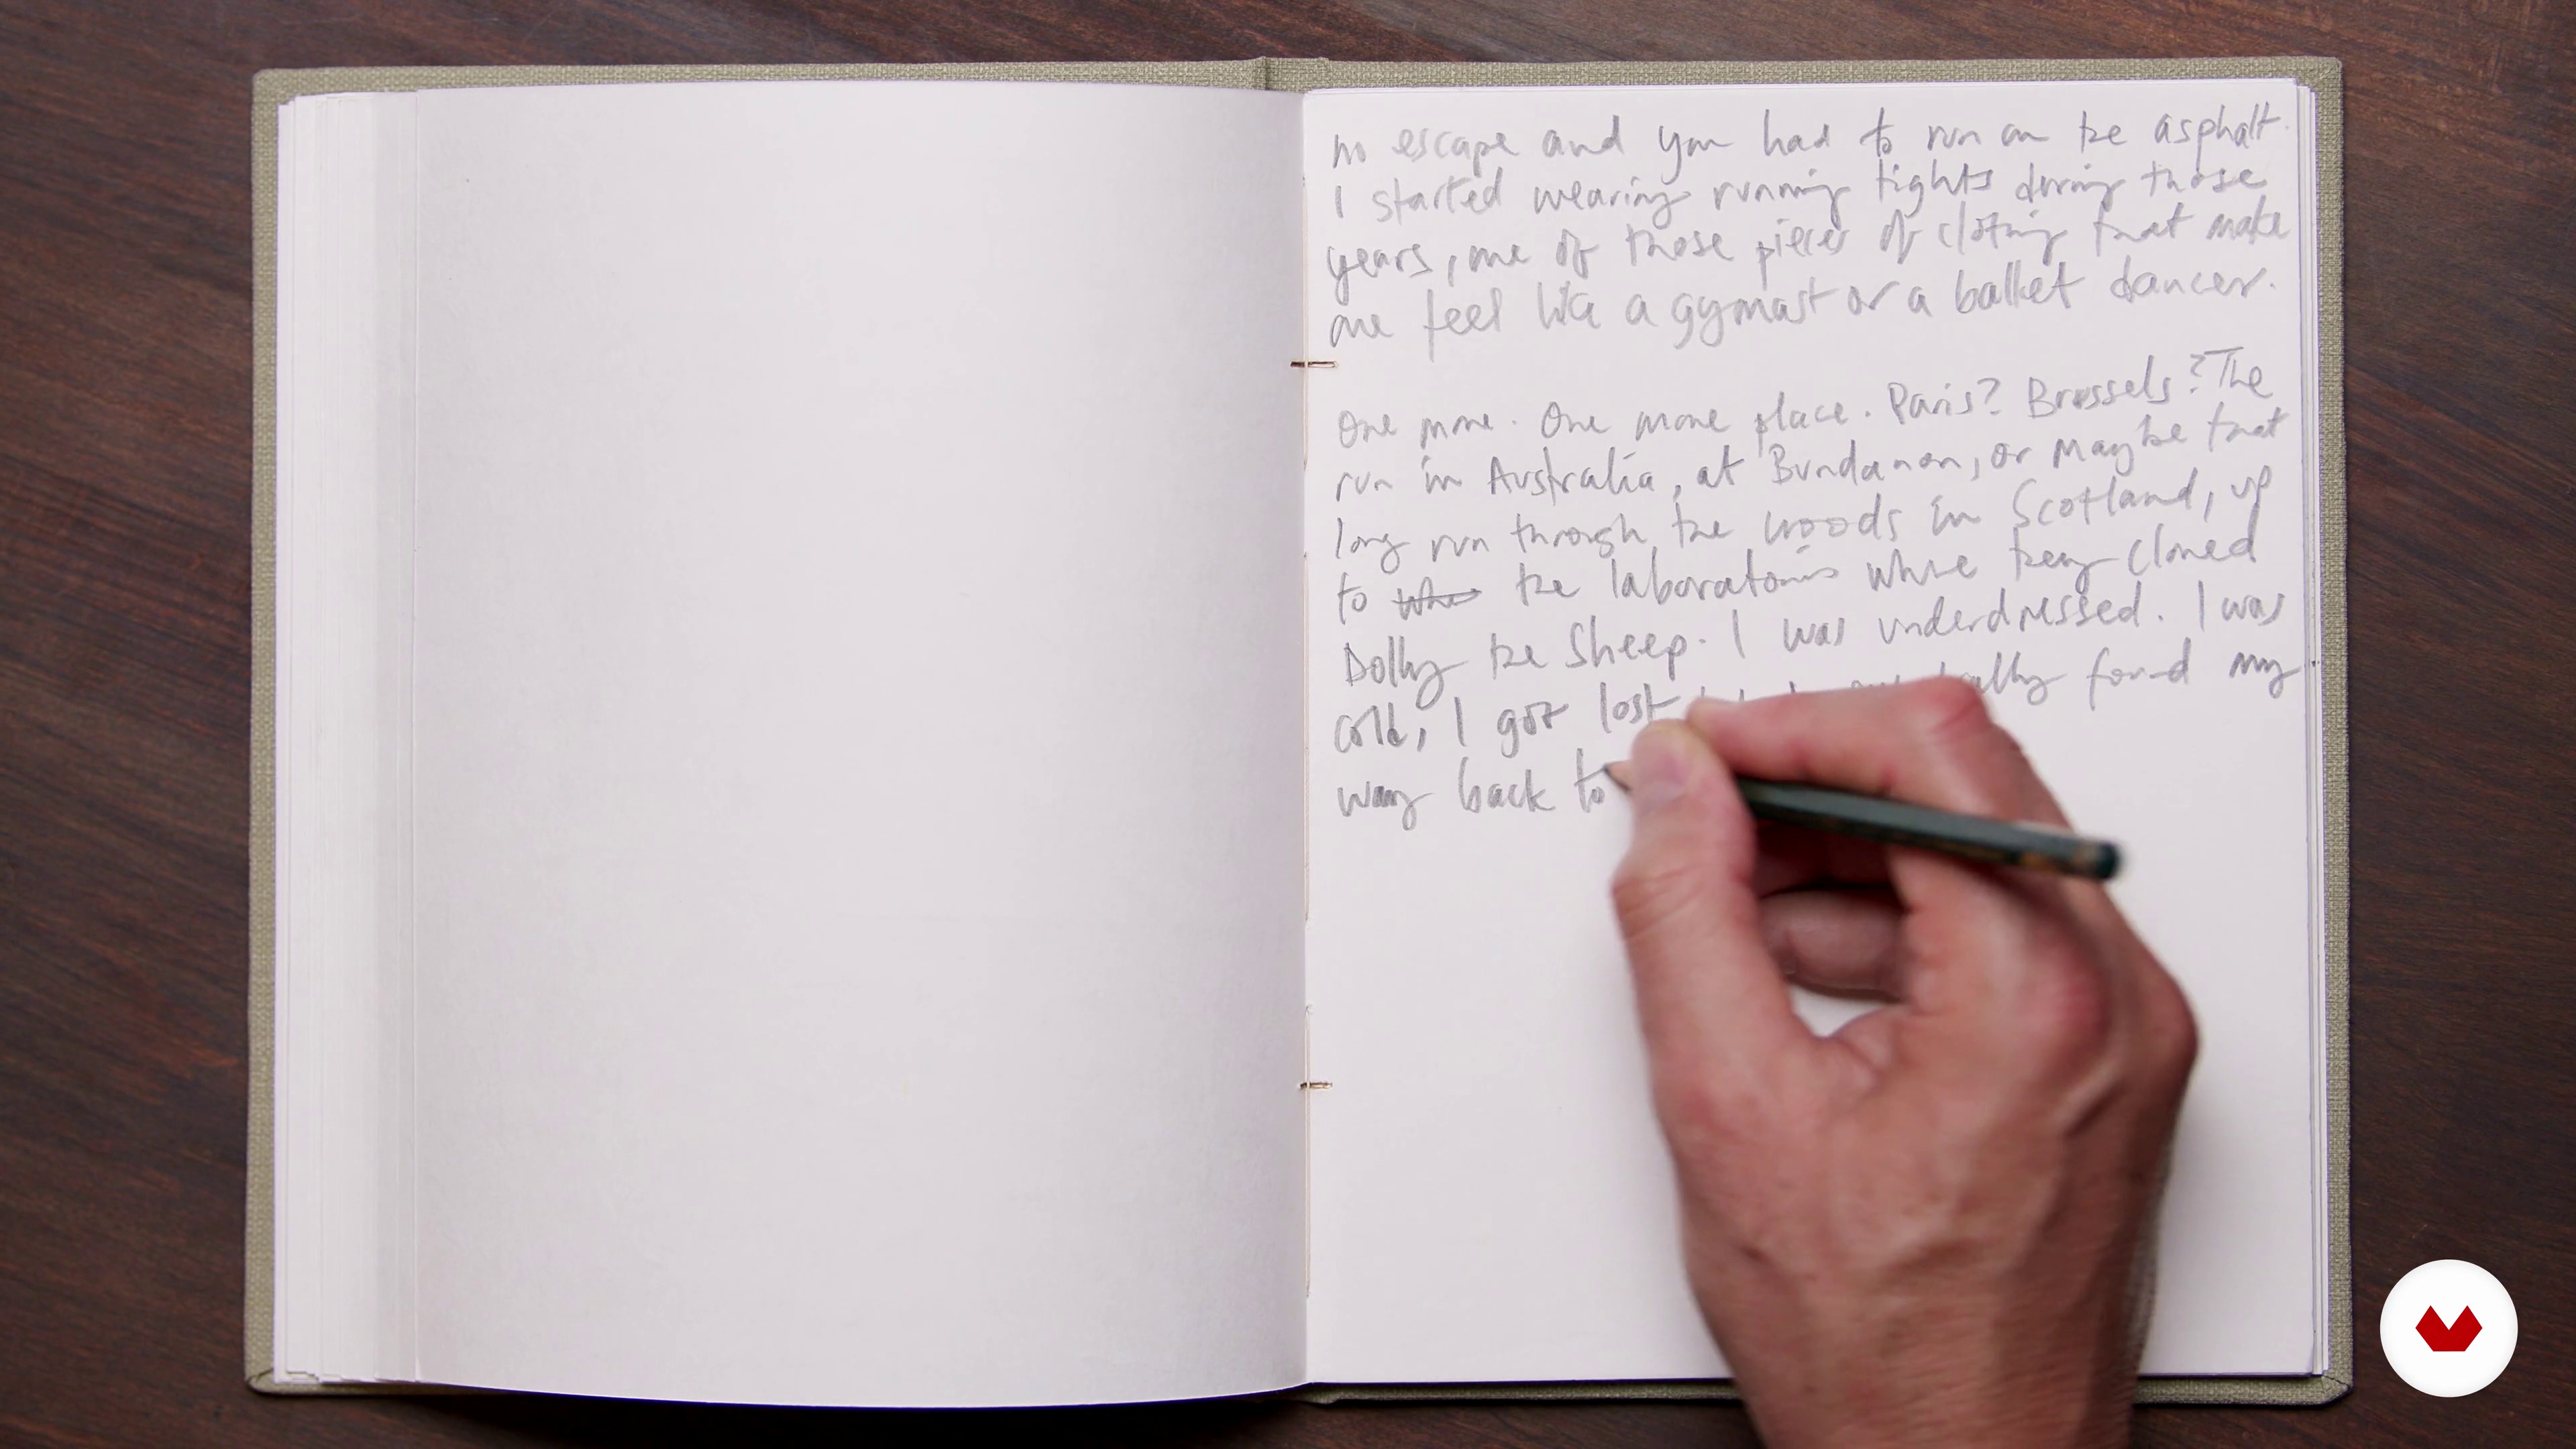 no escape and you had to run on the asphalt.
I started wearing running tights during those
years, one of those pieces of clothing that make
one feel like a gymast or a ballet dancer.
One more. One more place. Paris? Brussels? The
run in Australia, at Bundanon, or maybe that
long run through the woods in Scotland, up
to the laboratories where they cloned
Dolly the Sheep. I was underdressed. I was
cold, I got lost found my
way back to